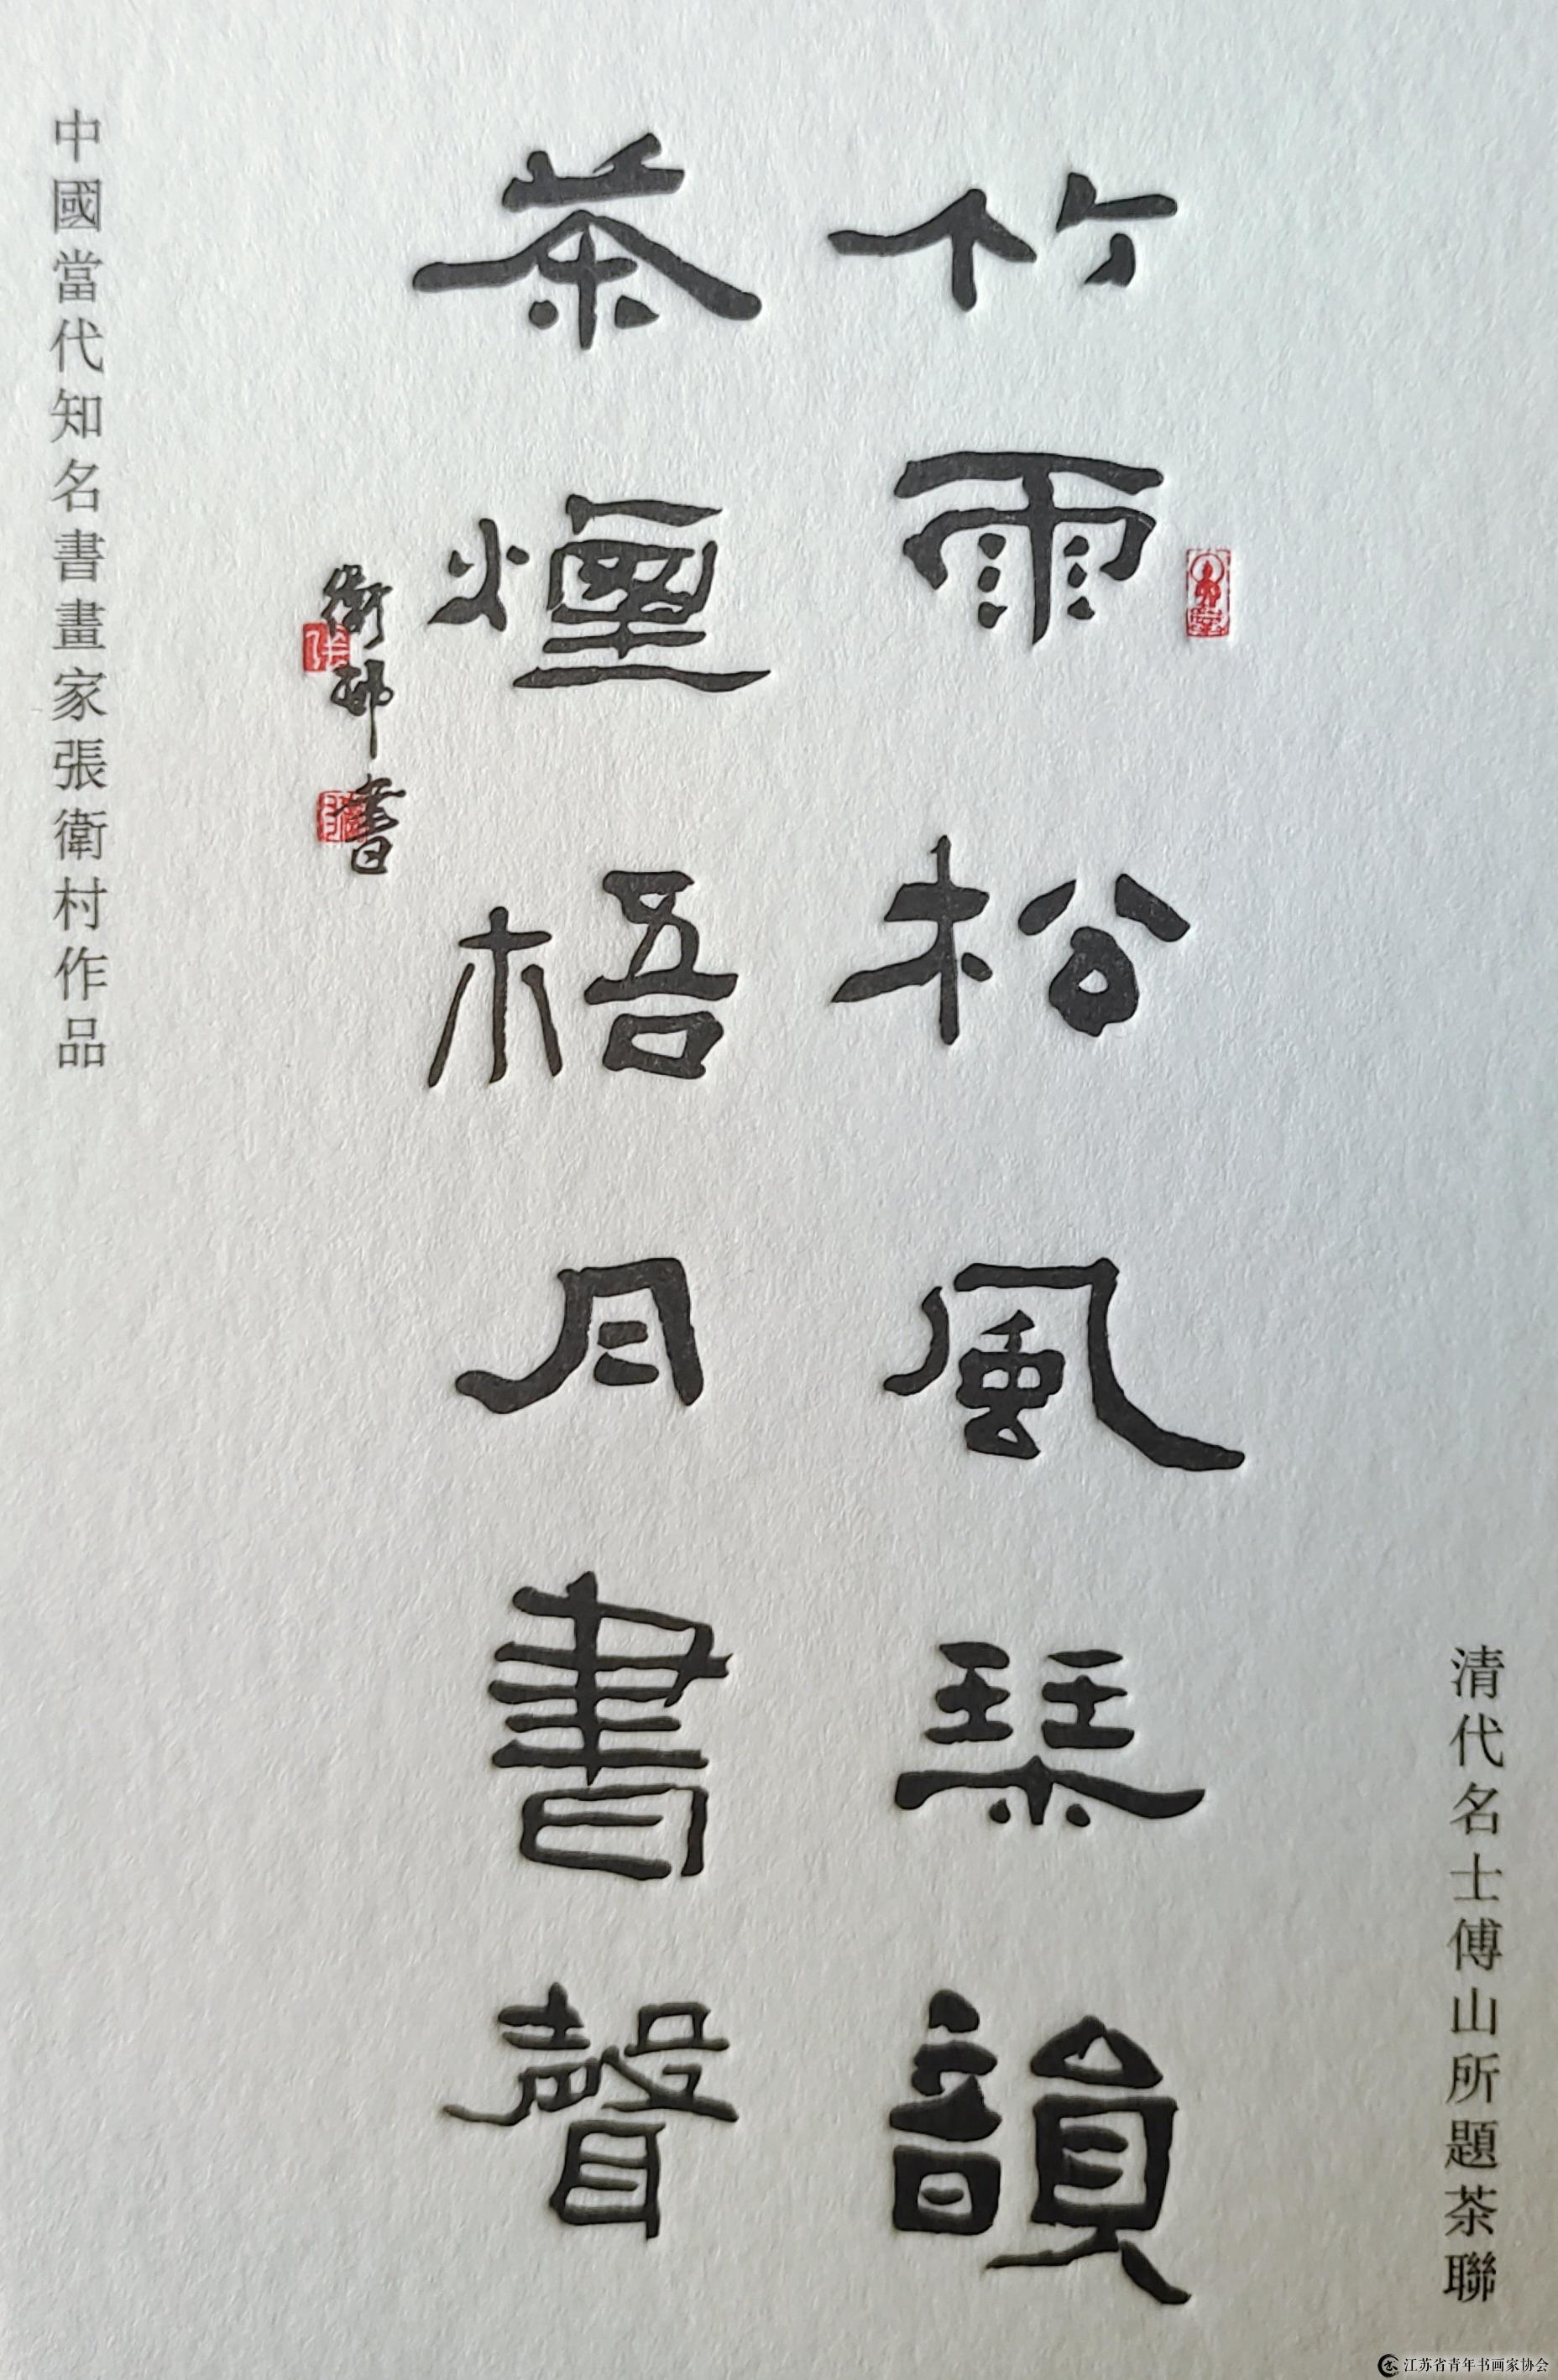 清代名士傅山所題茶聯
竹雨松風琹韻
茶煙梧月書聲
衛邨書
中國當代知名書畫家張衛村作品
江苏省青年书画家协会